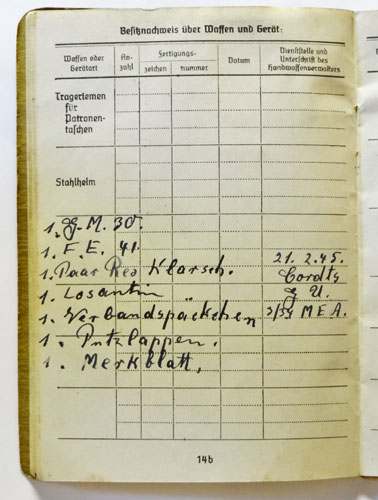 Besitznachweis über Waffen und Gerät:
Waffen oder Gerätart
An-zahl
Fertigungs-
zeichen
nummer
Datum
Dienststelle und Unterschrift des Handwaffenverwalters
Tragerlemen
für
Patronen-
taschen
Stahlhelm
1. G. M. 30.
1. F. E. 41.
1. Paar Res Klarsch. 21. 2. 45.
1. Losantin Cordts
1. Verbandspäckchen
M E A.
1. Putzlappen.
1. Merkblatt.
14b